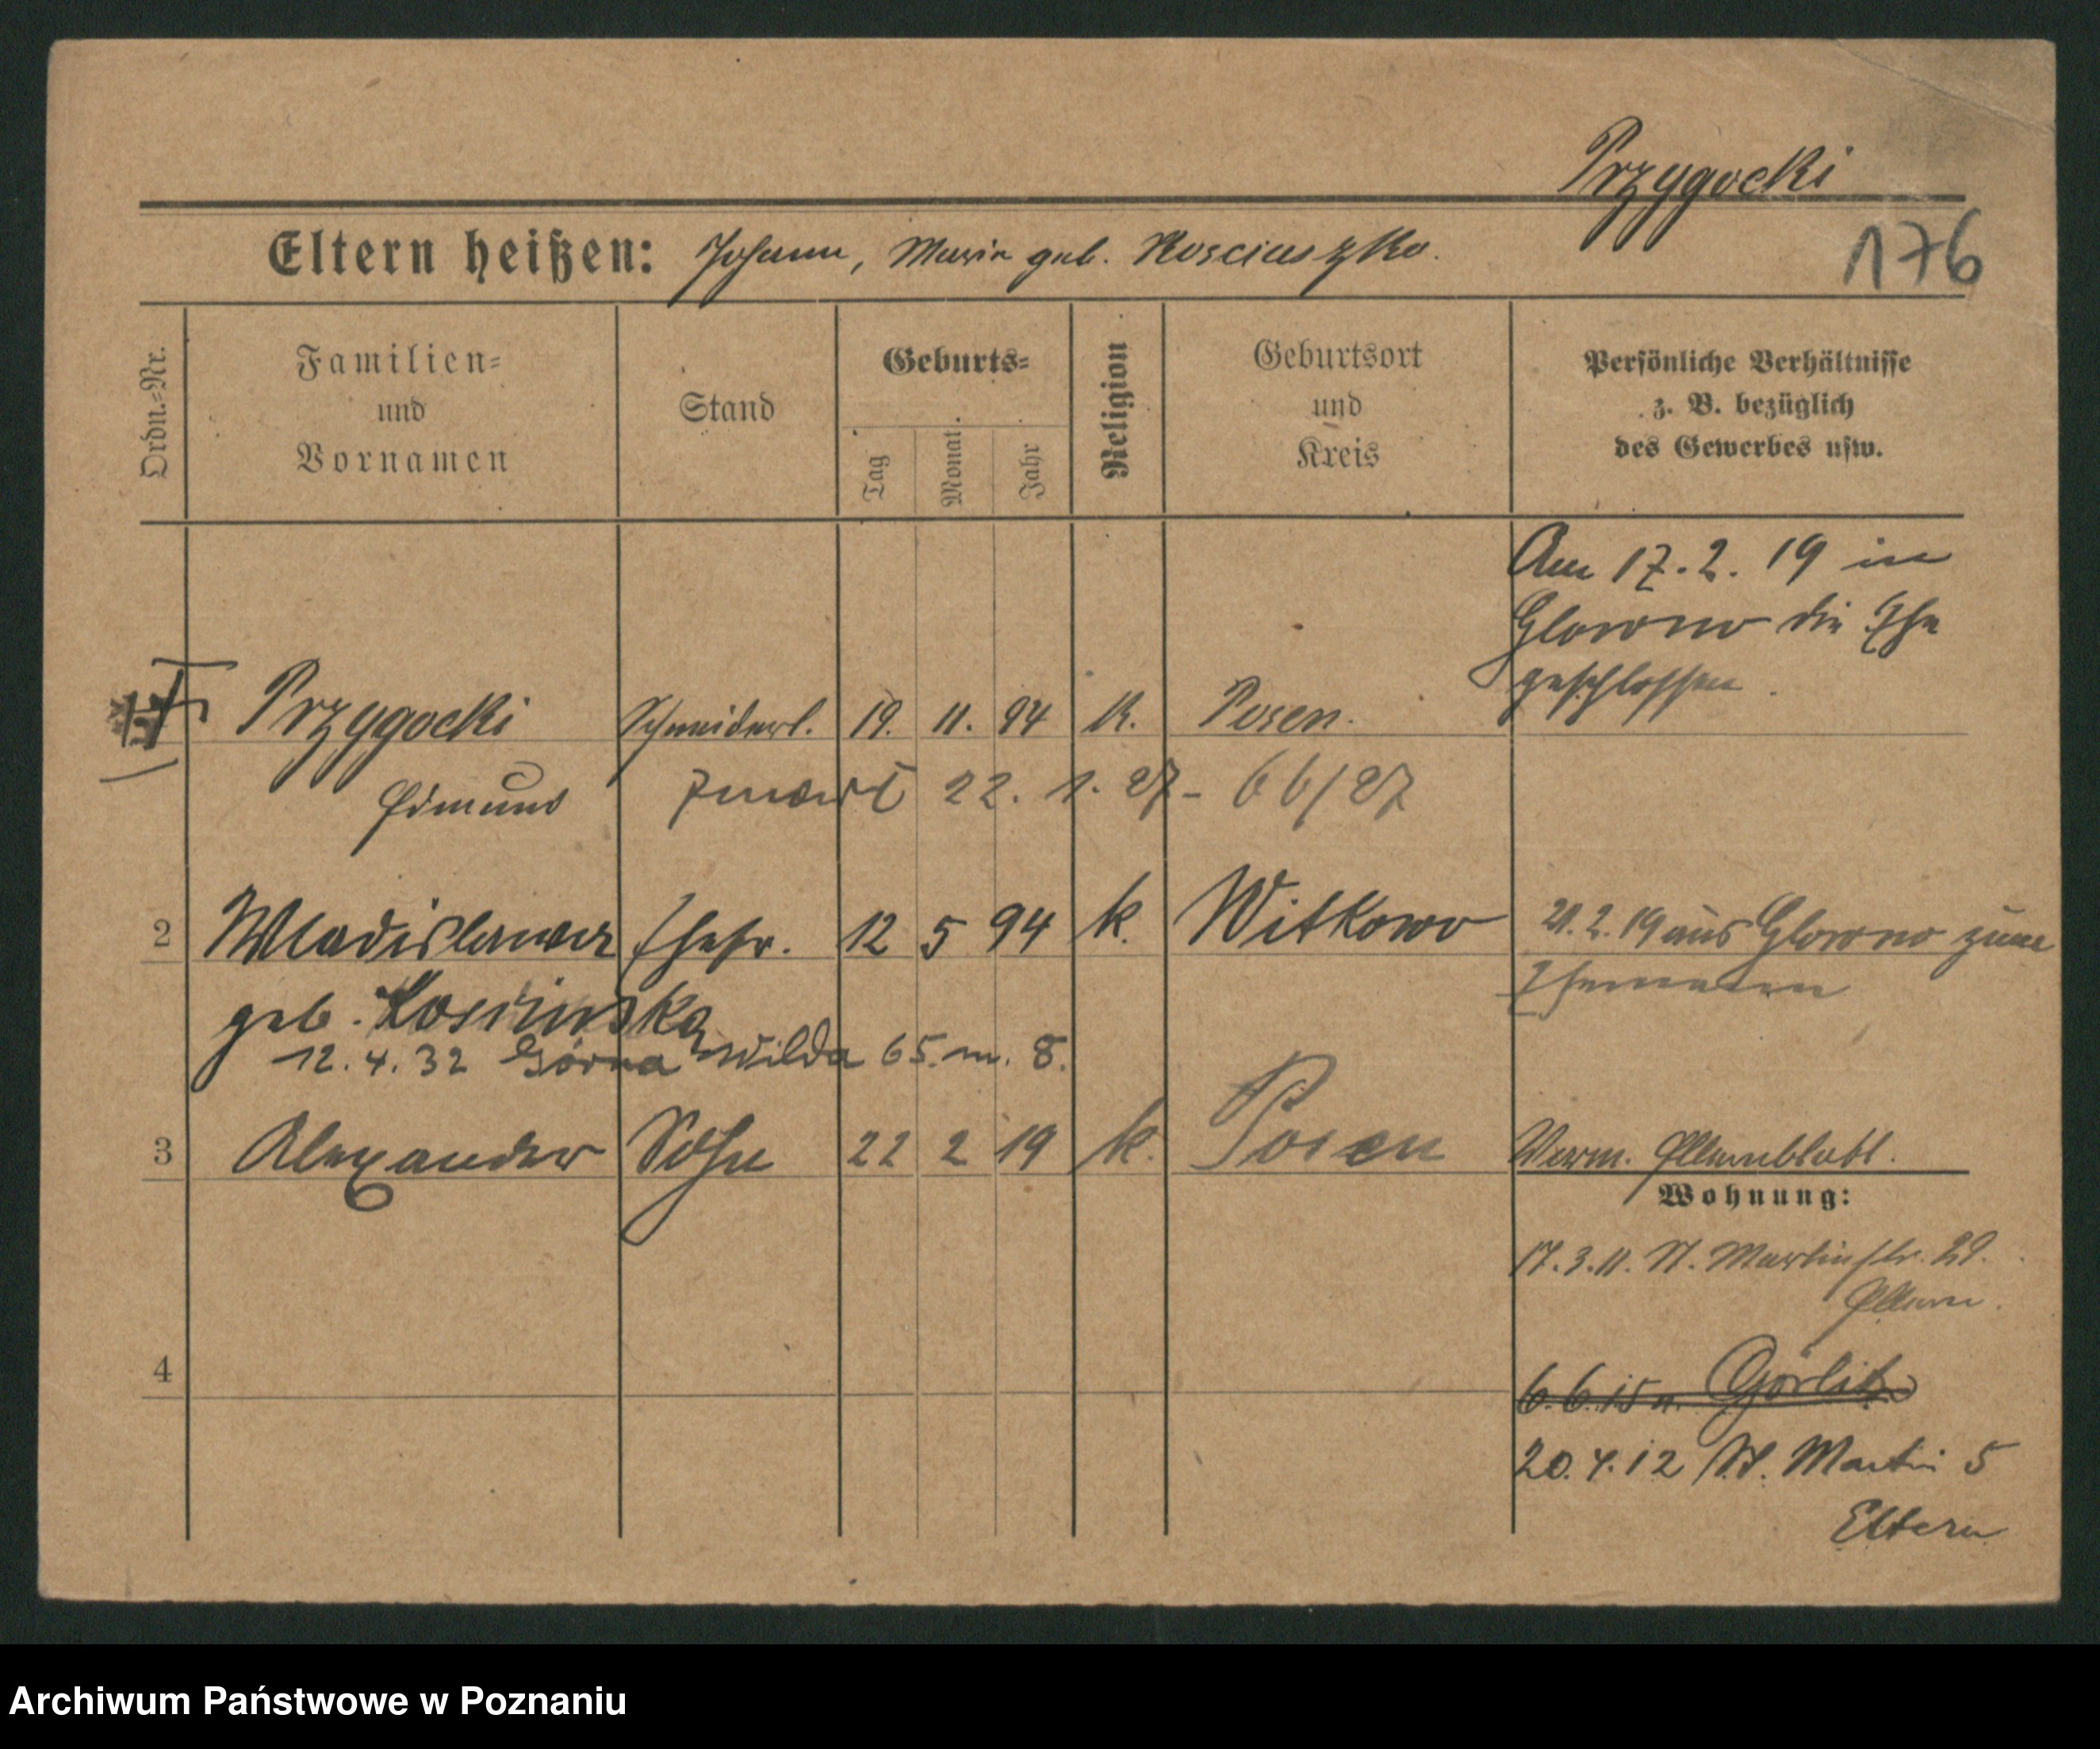 Przygocki
Eltern heißen: Johann, Maria geb. Kosciuszko.
176
Ordn.-Nr.
Familien-
und
Vornamen
Stand
Geburts-
Tag
Monat
Jahr
Religion
Geburtsort
und
Kreis
Persönliche Verhältnisse
z. B. bezüglich
des Gewerbes usw.
Am 17.2.19 in
Glowno die Ehe
geschlossen.
Przygocki Schneiderl. 19. 11. 94 K. Posen.
Edmund zmarł 22. 1. 27 - 66/27
2 Wladislawa Ehefr. 12 5 94 k. Witkowo 21.2.19 aus Glowno zum
Ehemann
geb.
12.4.32 Górna Wilda 65. m. 8.
3 Alexander Sohn 22 2 19 k. Posen Verm. Elternblatt.
Wohnung:
17.3.11. St. Martinstr. 29.
Eltern.
4
6.6.15 n. Görlitz
20.4.12 St. Martin 5
Eltern
Archiwum Państwowe w Poznaniu